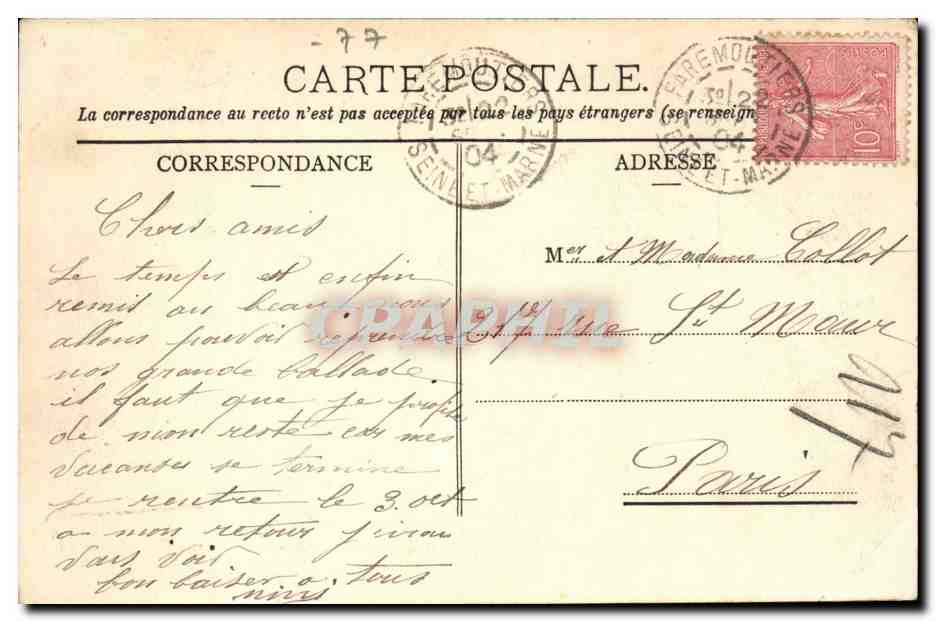 - 77
CARTE POSTALE.
La correspondance au recto n'est pas acceptée par tous les pays étrangers (se renseign
FAREMOUTIERS
22
04
SEINE-ET-MARNE
FAREMOUTIERS
22
04
SEINE-ET-MARNE
POSTES
10
CORRESPONDANCE
ADRESSE
Chers amis
Le temps est enfin
remis au beau nous
allons pouvoir reprendre
nos grande ballade
il faut que je profite
de mon reste car mes
vacanses se termine
je rentre le 3. oct
a mon retour j'irai
vous voir
bon baiser a tous
ninis
Mer et Madame Collot
217 rue St Maur
Paris
CPAPHIL